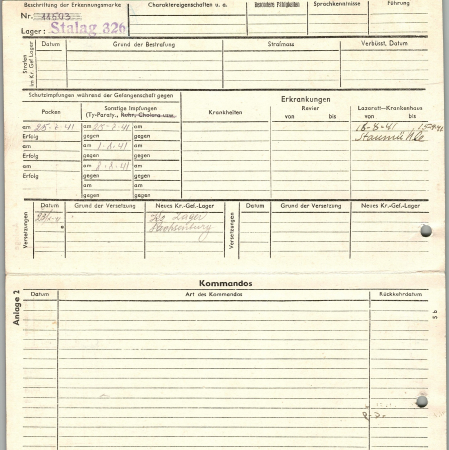 Beschriftung der Erkennungsmarke
Charaktereigenschaften u. a.
Besondere Fähigkeiten
Sprachkenntnisse
Führung
Nr. 11503
Lager: Stalag 326
Strafen im Kr.-Gef.-Lager
Datum
Grund der Bestrafung
Strafmass
Verbüsst, Datum
Schutzimpfungen während der Gefangenschaft gegen
Erkrankungen
Pocken
Sonstige Impfungen
(Ty-Paraty., Ruhr, Cholera usw.)
Krankheiten
Revier
von bis
Lazarett—Krankenhaus
von bis
am 25.7.41 am 25.7.41 am
Erfolg gegen gegen
am am 1.8.41 am
Erfolg gegen gegen
am am 8.8.41 am
Erfolg gegen gegen
am am
gegen gegen
18-8-41
Staumühle
Versetzungen
Datum
Grund der Versetzung
Neues Kr.-Gef.-Lager
Versetzungen
Datum
Grund der Versetzung
Neues Kr.-Gef.-Lager
Lager
Anlage 2
Kommandos
Datum
Art des Kommandos
Rückkehrdatum
5 b